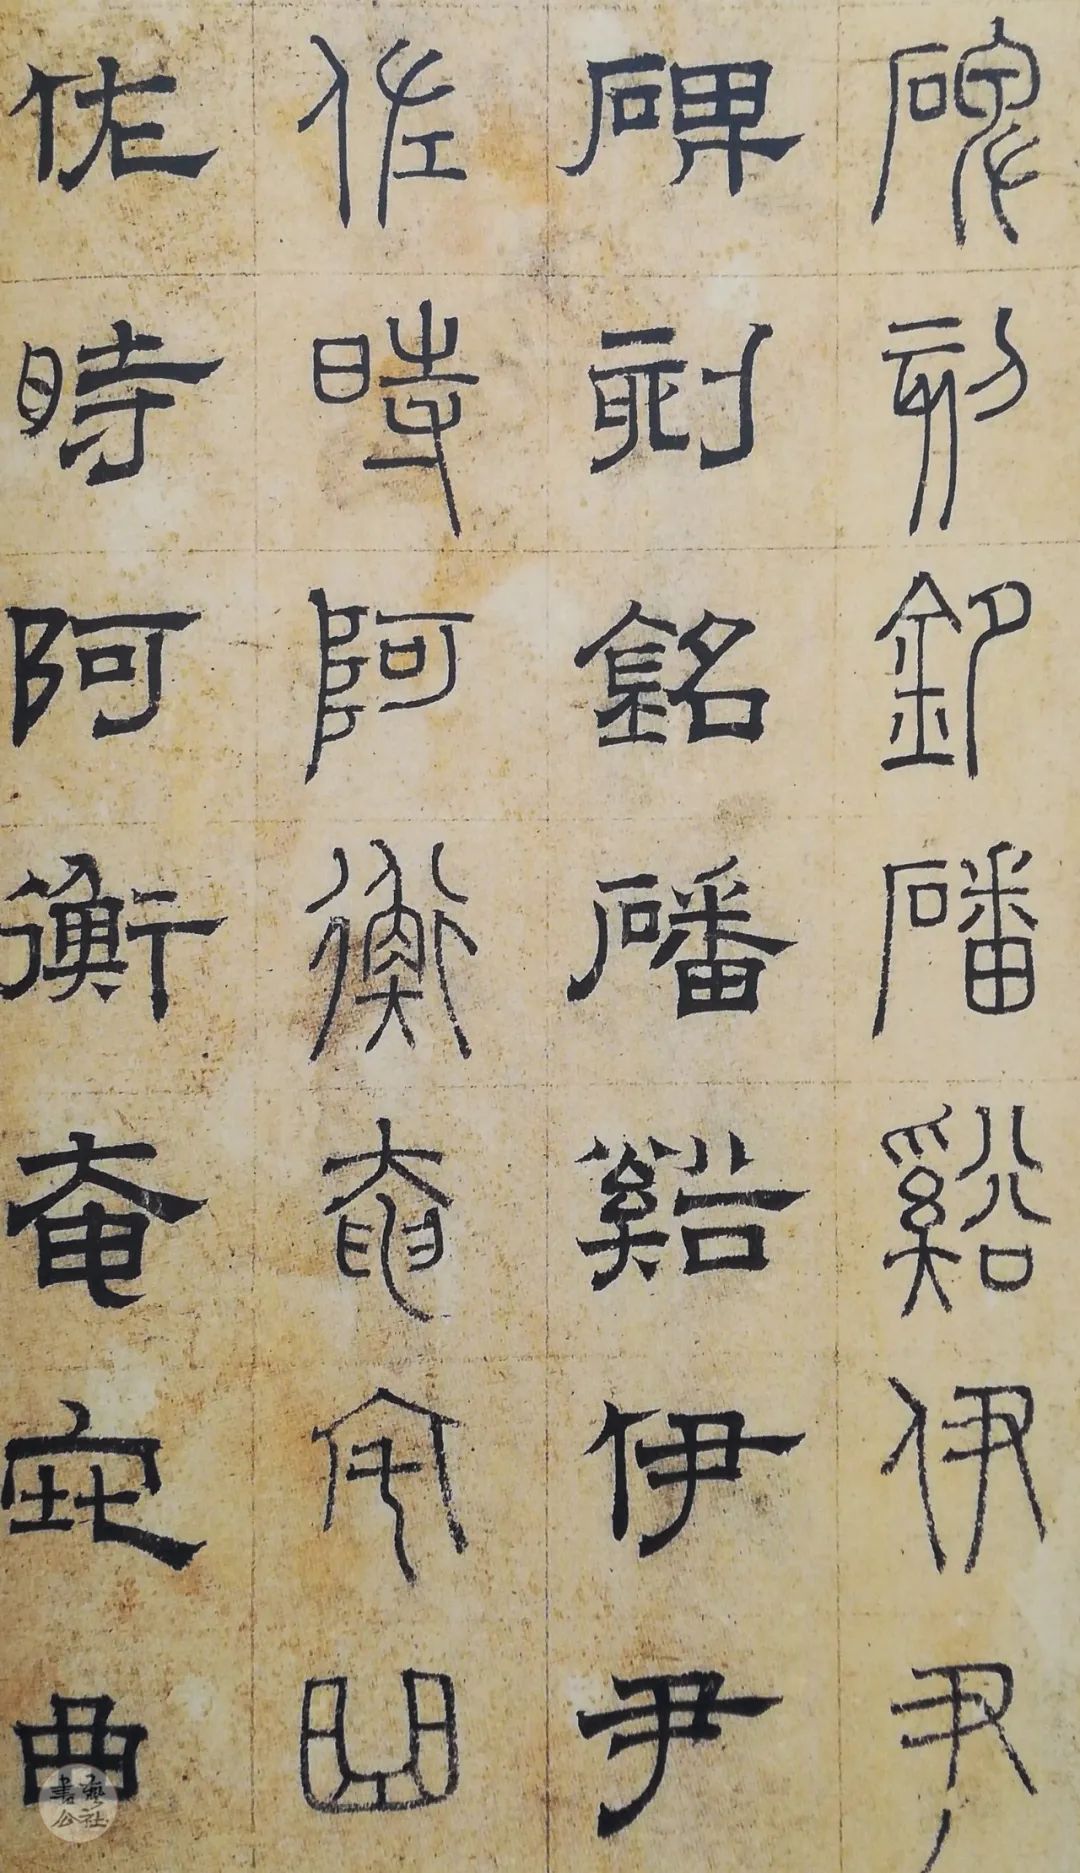 碑刻銘磻谿伊尹
碑刻銘磻谿伊尹
佐時阿衡奄宅曲
佐時阿衡奄宅曲
書藝公社